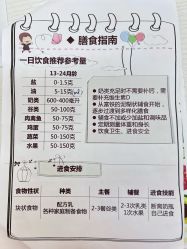 膳食指南
一日饮食推荐参考量
13-24月龄
盐 0-1.5克
油 5-15克
奶类 600-400毫升
谷类 50-100克
肉禽鱼 50-75克
鸡蛋 25-50克
蔬菜 50-150克
水果 50-150克
奶类充足时不需要补钙,需
要补充维生素D
从富铁的泥糊状辅食开始,
逐步过渡到多样化膳食
辅食不加或少加盐和调味品
定期测量体重和身长
饮食卫生、进食安全
进食安排
食物性状 种类 主餐 辅餐 进食技能
块状食物 配方奶 2-3餐谷类 2-3次乳类
各种家庭制备食物 1次水果
自己进食